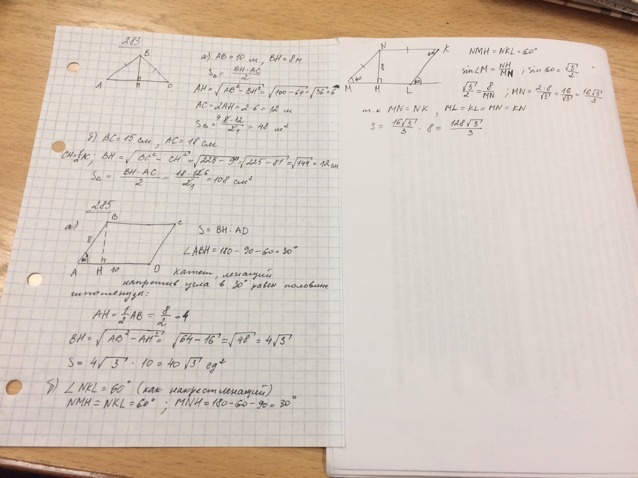 283
B
A
H
C
а) AB = 10 м, BH = 8 м
S△ = BH·AC / 2
AH = √AB² − BH² = √100 − 64 = √36 = 6
AC = 2AH = 2·6 = 12 м
S△ = 8·12 / 2 = 48 м²
б) BC = 15 см, AC = 18 см
BH = √BC² − CH² = √225 − 9² = √225 − 81 = √144 = 12 см
S△ = BH·AC / 2 = 18·12 / 2 = 108 см²
285
а)
B
C
8
60
h
A
H
10
D
S = BH·AD
∠ABH = 180 − 90 − 60 = 30°
катет, лежащий
напротив угла в 30° равен половине
гипотенузы:
AH = 1/2 AB = 8/2 = 4
BH = √AB² − AH² = √64 − 16 = √48 = 4√3
S = 4√3 · 10 = 40√3 ед²
б) ∠NKL = 60° (как накрестлежащий)
NMH = NKL = 60° ; MNH = 180 − 60 − 90 = 30°
N
K
8
60
60
M
H
L
M
NMH = NKL = 60°
sin∠M = NH/MN ; sin 60 = √3/2
√3/2 = 8/MN ; MN = 2·8/√3 = 16/√3 = 16√3/3
т.к MN = NK, ML = KL = MN = KN
S = 16√3/3 · 8 = 128√3/3